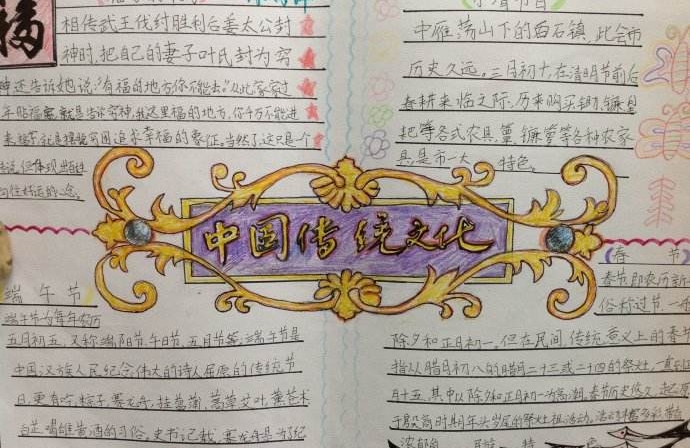 福
相传武王伐纣胜利后姜太公封
神时,把自己的妻子叶氏封为穷
神还告诉她说:"有福的地方你不能去。"从此家家过
年贴福字,就是告诉穷神,我这里福的地方,你千万不能进
来福字就是摆脱穷困追求幸福的象征。当然了,这只是个
传说,但体现出百姓
向往好运的心念。
中雁荡山下的白石镇,此会市
历史久远。三月初十,在清明节前后
春耕来临之际,历来购买锄,镰
把等各式农具,簟,镰等各种农家
具是市一大 特色。
中国传统文化
端午节
端午节为每年农历
五月初五,又称端阳节,午日节,五月节等,端午节是
中国汉族人民纪念伟大的诗人屈原的传统节
日,更有吃粽子,赛龙舟,挂菖蒲,蒿草,艾叶,薰苍术
白芷,喝雄黄酒的习俗。史书记载,赛龙舟是为了纪
春 节
春节即农历新
俗称过节,一
除夕和正月初一。但在民间,传统意义上的春节
指从腊月初八的腊月二十三或二十四的祭灶,一直到正
月十五,其中以除夕和正月初一为高潮,春节历史悠久,起源
于殷商时期年头岁尾的祭灶祖活动。活动丰富多彩带有
浓郁的 民族 特